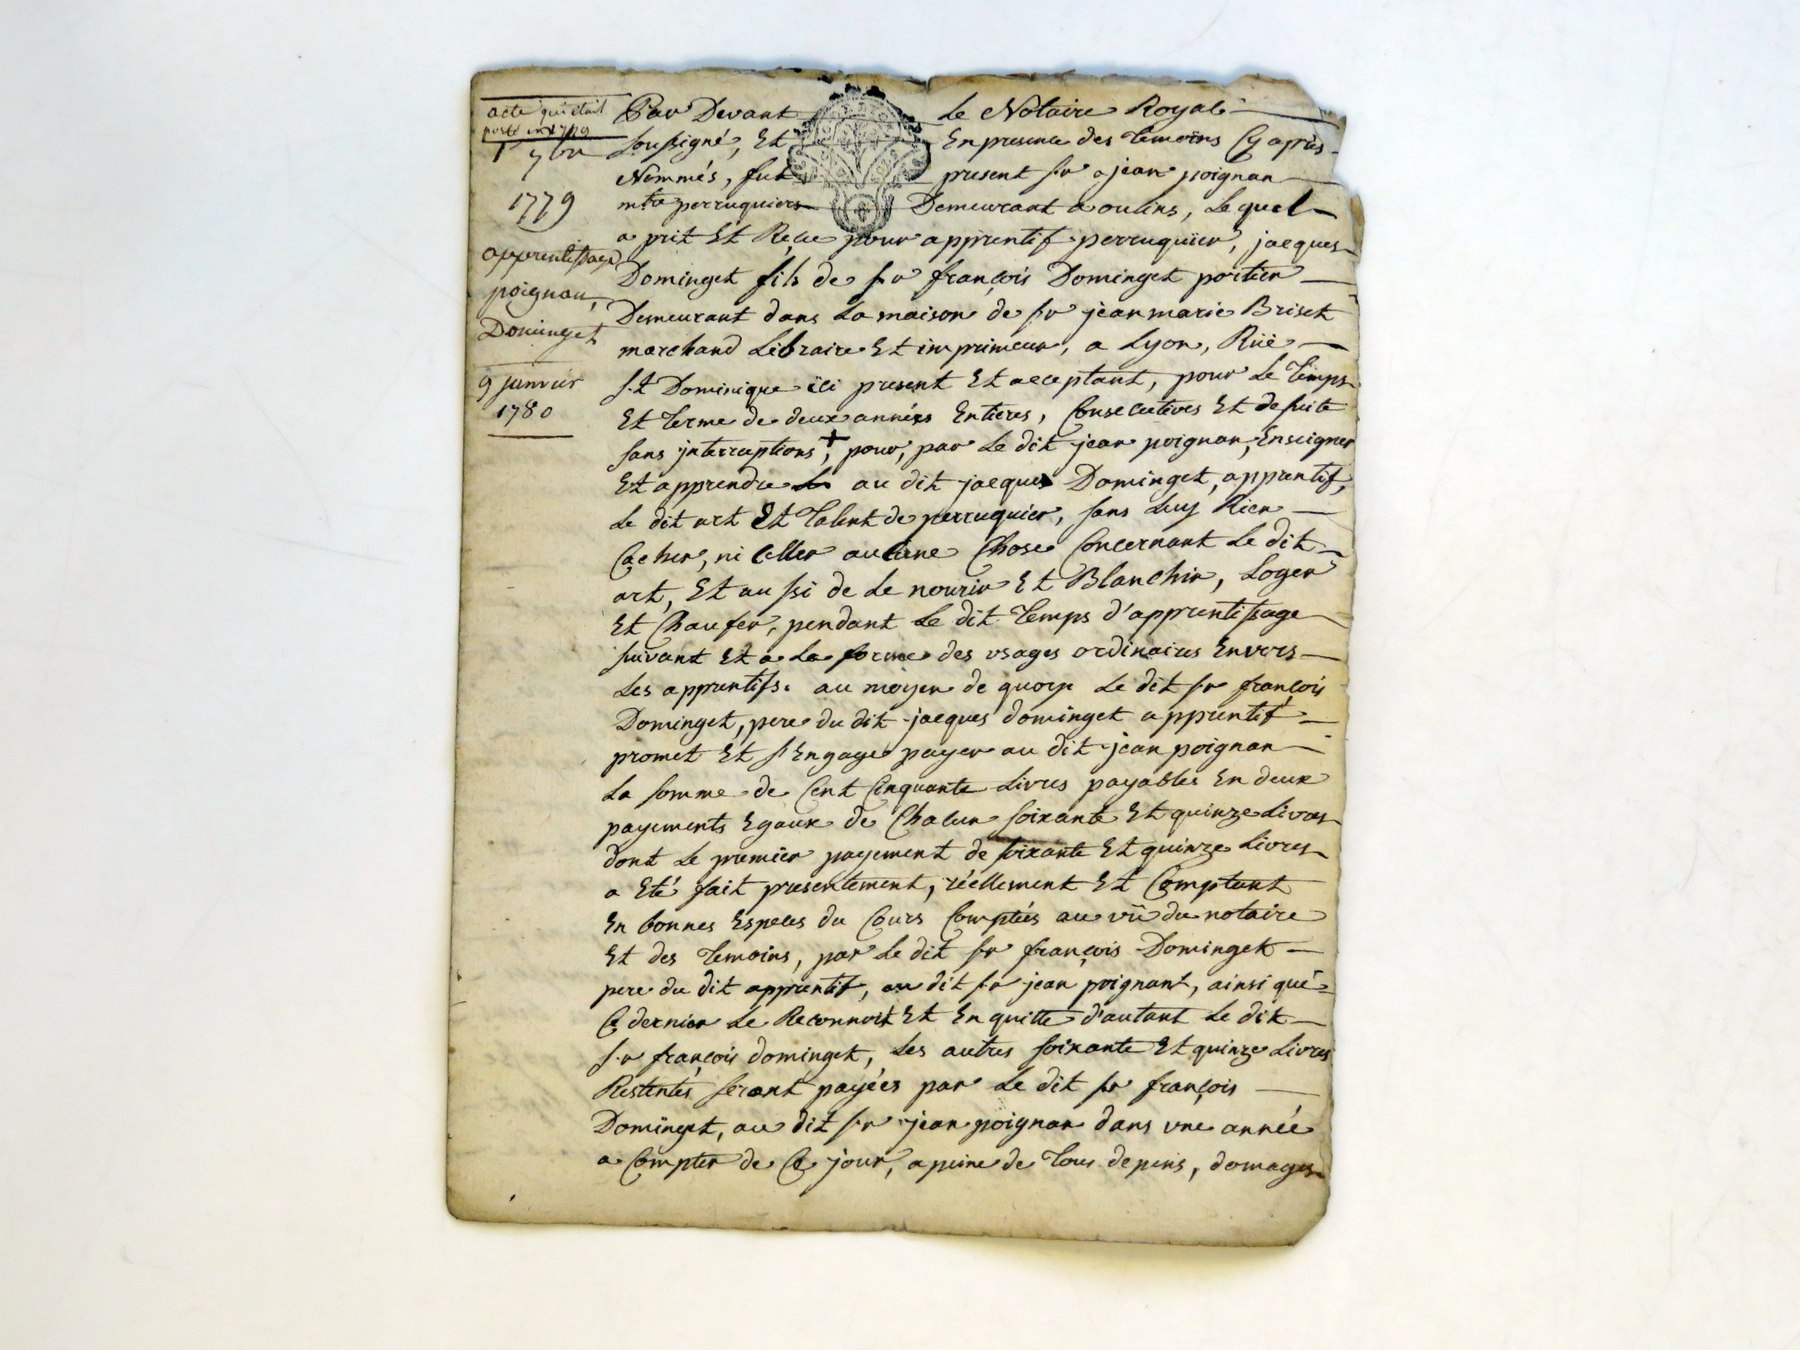 acte qui était
porté en 1779
1 7bre
1779
apprentissage
poignan,
Dominget
9 janvier
1780
Par Devant Le Notaire Royale
soussigné, Et En presence des temoins Cy après
Nommés, fut present sr jean poignan
mtre perruquiers Demeurant a oulins, Le quel
a prit Et Reçu pour apprentif perruquier, jacques
Dominget fils de sr françois Dominget portier
Demeurant dans La maison de sr jean marie Briset
marchand Libraire Et imprimeur, a Lyon, Rüe
st Dominique ici present Et acceptant, pour Le temps
Et terme de deux années Entieres, Consecutives Et de suite
sans interruptions +, pour, par Le dit jean poignan, Enseigner
Et apprendre au dit jacques Dominget, apprentif,
Le dit art Et talent de perruquier, sans Luy Rien
Cacher, ni Celler aucune Chose Concernant Le dit
art, Et aussi de Le nourir Et Blanchir, Loger
Et Chaufer, pendant Le dit temps d'apprentissage
suivant Et a La forme des usages ordinaires Envers
Les apprentifs. au moyen de quoy Le dit sr françois
Dominget, pere du dit jacques dominget apprentif
promet Et s'Engage payer au dit jean poignan
La somme de Cent Cinquante Livres payables En deux
payements Egaux de Chacun soixante Et quinze Livres
dont Le premier payement de soixante Et quinze Livres
a Eté fait presentement, réellement Et Comptant
En bonnes Especes du Cours Comptées au vü du notaire
Et des temoins, par Le dit sr françois Dominget
pere du dit apprentif, au dit sr jean poignant, ainsi que
Ce dernier Le Reconnoit Et En quitte d'autant Le dit
sr françois dominget, Les autres soixante Et quinze Livres
Restentes seront payées par Le dit sr françois
Dominget, au dit sr jean poignan dans une année
a Compter de Ce jour, a peine de tous depens, domages